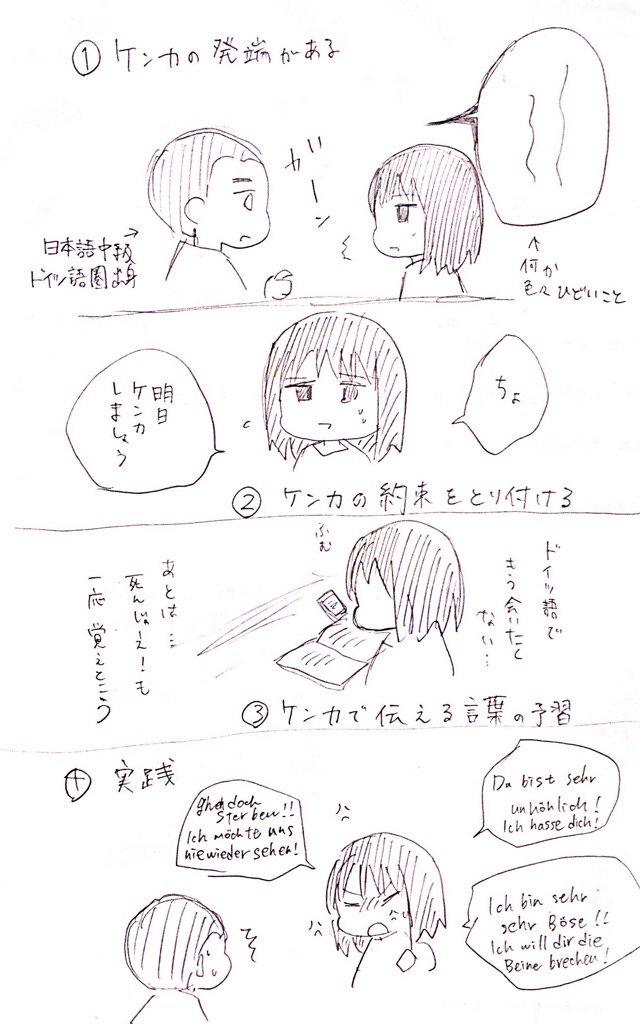 ① ケンカの発端がある
ガーン
日本語中級
ドイツ語圏出身
→
↑
何か
色々ひどいこと
ちょ
明日
ケンカ
しましょう
② ケンカの約束をとり付ける
ドイツ語で
もう会いたく
ない…
ふむ
あとは…
死んじゃえ!も
一応覚えとこう
③ ケンカで伝える言葉の予習
④ 実践
Du bist sehr
unhöhlich!
Ich hasse dich!
doch
sterben!!
Ich möchte uns
nie wieder sehen!
Ich bin sehr
sehr Böse!!
Ich will dir die
Beine brechen!